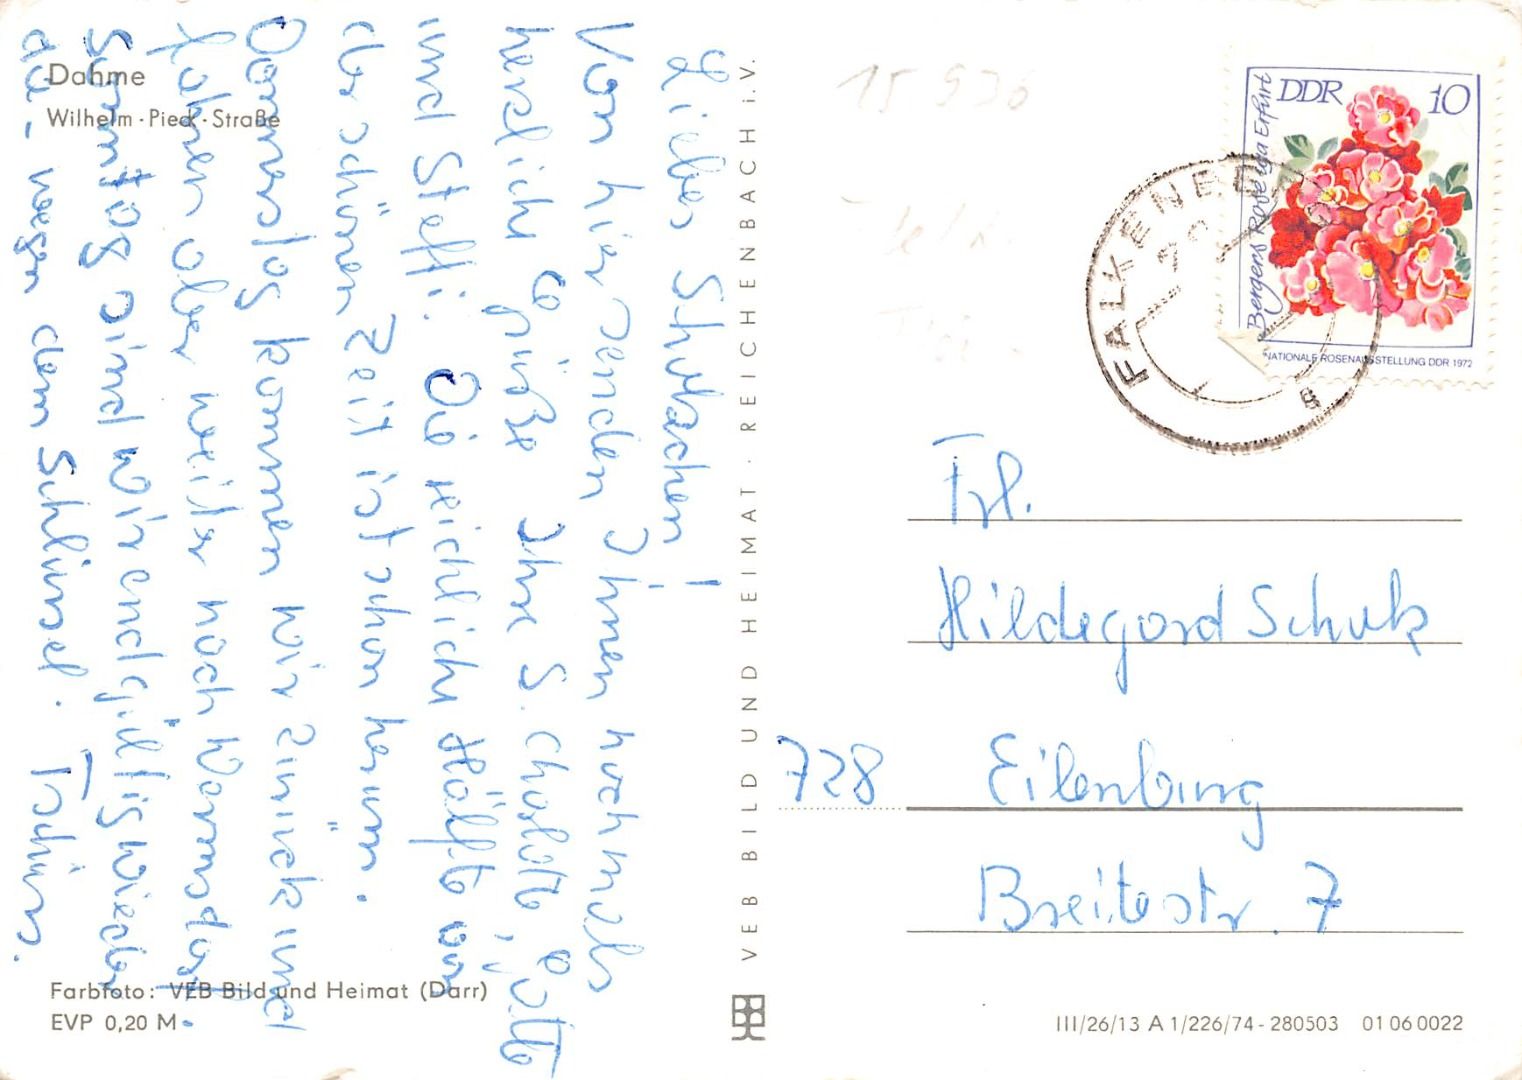 Dahme
Wilhelm-Pieck-Straße
Liebes Schulzchen!
Von hier senden Ihnen nochmals
herzliche Grüße Ihre S. Cholotte, Lotte
und Steffi. Die reichliche Hälfte von
der schönen Zeit ist schon herum.
Donnerstag kommen wir zurück und
fahren aber weiter nach
Samstag sind wir endgültig wieder
da - wegen dem Schlüssel. Tschüss.
Farbfoto: VEB Bild und Heimat (Darr)
EVP 0,20 M
VEB BILD UND HEIMAT · REICHENBACH i.V.
15 936
DDR 10
Bergers Rose Erfurt
NATIONALE ROSENAUSSTELLUNG DDR 1972
FALKENBERG
Frl.
Hildegard Schulz
728 Eilenburg
Breitestr. 7
III/26/13 A 1/226/74-280503 01 06 0022